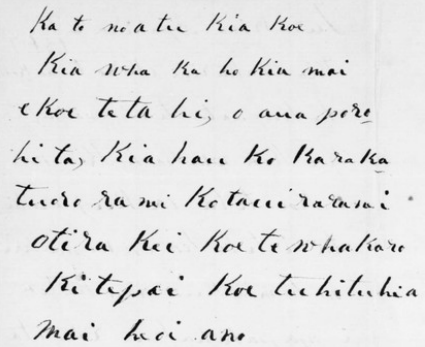 Ka to noatu kia koe
Kia wha ka ho kia mai
e koe te ta hi, o aua poro
hi ta, Kia hau Ko Karaka
tuoro
Otira Kei Koe te whakaro
Ki te pai Koe tuhituhia
mai hoi ano